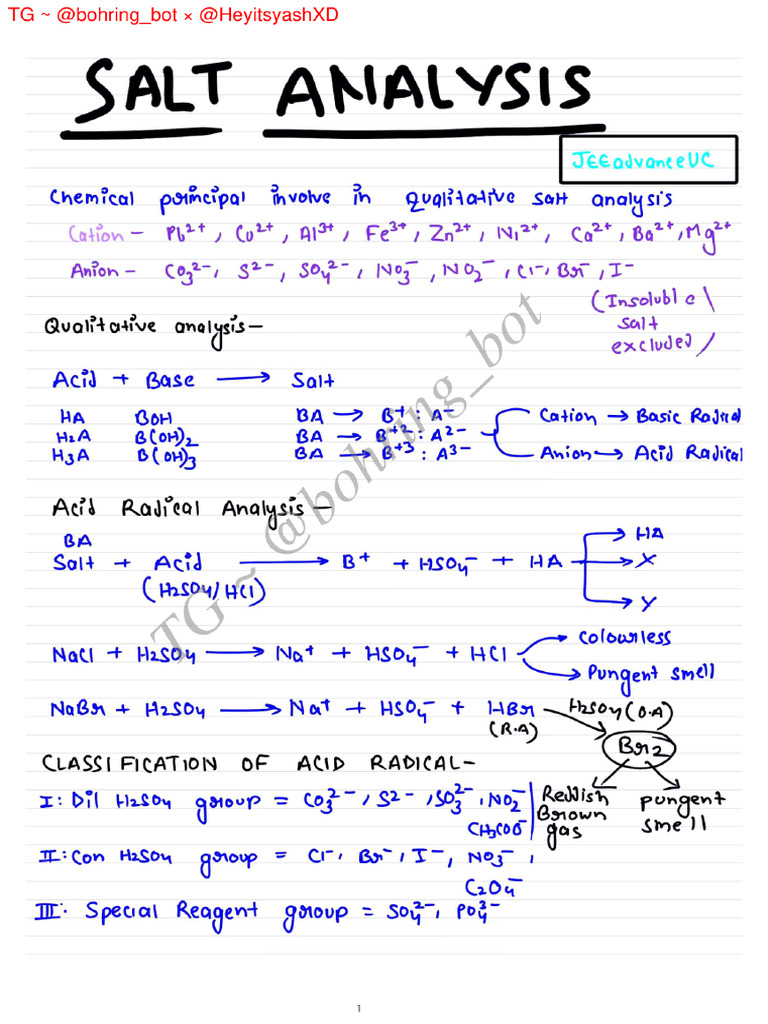 TG ~ @bohring_bot × @HeyitsyashXD
SALT ANALYSIS
JEEadvanceUC
Chemical principal involve in Qualitative salt analysis
Cation - Pb²⁺, Cu²⁺, Al³⁺, Fe³⁺, Zn²⁺, Ni²⁺, Ca²⁺, Ba²⁺, Mg²⁺
Anion - CO₃²⁻, S²⁻, SO₄²⁻, NO₃⁻, NO₂⁻, Cl⁻, Br⁻, I⁻
(Insoluble
salt
excluded)
Qualitative analysis-
Acid + Base → Salt
HA BOH BA → B⁺ : A⁻
H₂A B(OH)₂ BA → B⁺² : A²⁻
H₃A B(OH)₃ BA → B⁺³ : A³⁻
Cation → Basic Radical
Anion → Acid Radical
Acid Radical Analysis-
BA
Salt + Acid → B⁺ + HSO₄⁻ + HA
(H₂SO₄/HCl)
HA
X
Y
NaCl + H₂SO₄ → Na⁺ + HSO₄⁻ + HCl
Colourless
Pungent smell
NaBr + H₂SO₄ → Na⁺ + HSO₄⁻ + HBr
(R.A)
H₂SO₄ (O.A)
Br₂
Reddish
Brown
gas
pungent
smell
CLASSIFICATION OF ACID RADICAL-
I: Dil H₂SO₄ group = CO₃²⁻, S²⁻, SO₃²⁻, NO₂⁻
CH₃COO⁻
II: Con H₂SO₄ group = Cl⁻, Br⁻, I⁻, NO₃⁻,
C₂O₄⁻
III: Special Reagent group = SO₄²⁻, PO₄³⁻
TG ~ @bohring_bot
1